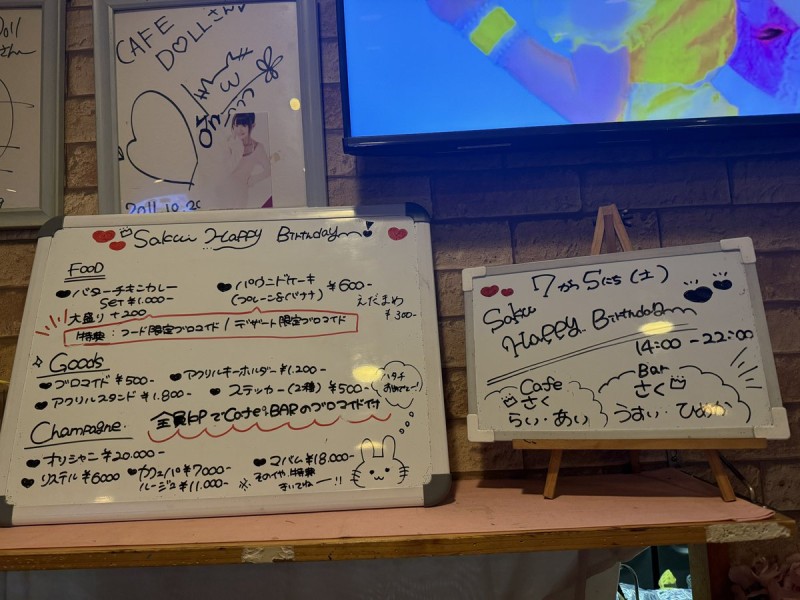 Doll
さん
CAFE
DOLLさん
2011.10.20
Saku Happy Birthday
FOOD
バターチキンカレー
SET ¥1.000-
大盛り +200
パウンドケーキ ¥600-
(プレーン&バナナ)
えだまめ
¥300-
特典:フード限定ブロマイド / デザート限定ブロマイド
Goods
ブロマイド ¥500-
アクリルキーホルダー ¥1.200-
アクリルスタンド ¥1.800-
ステッカー(2種) ¥500-
ハタチ
おめでとー!
Champagne
全員にPでCafe&BARのブロマイド付
オリシャン ¥20.000-
カフェパ ¥7000-
マバム ¥18.000-
リステル ¥6000
ルージュ ¥11.000-
※その他、特典
きいてねー!!
7がつ5にち(土)
Saku
Happy Birthday
14:00-22:00
Cafe
さく
らい・あい
Bar
さく
うすい・ひめか